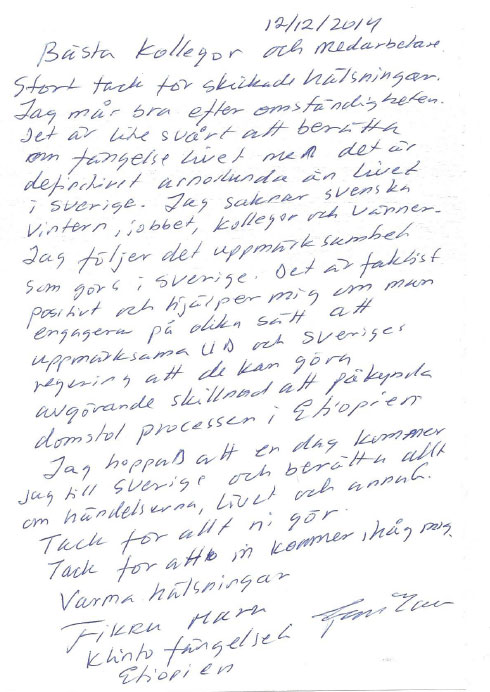 12/12/2014
Bästa kollegor och medarbetare.
Stort tack för skickade hälsningar.
Jag mår bra efter omständigheten.
Det är lite svårt att berätta
om fängelse livet men det är
definitivt annorlunda än livet
i Sverige. Jag saknar svenska
vintern, jobbet, kollegor och vänner.
Jag följer det uppmärksamhet
som görs i Sverige. Det är faktist
positivt och hjälper mig om man
engagera på olika sätt att
uppmärksama UD och Sveriges
regering att de kan göra
avgörande skillnad att påkynda
domstol processen i Etiopien
Jag hoppas att en dag kommer
jag till Sverige och berätta allt
om händelserna, livet och annat.
Tack för allt ni gör.
Tack för att ni kommer ihåg mig.
Varma hälsningar
Fikru Maru
Klinto fängelset
Etiopien